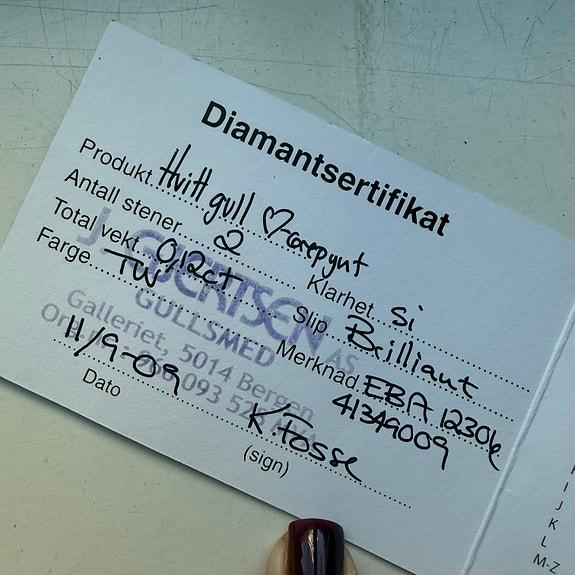 Diamantsertifikat
Produkt Hvitt gull ♡-ørepynt
Antall stener 2 Klarhet Si
Total vekt 0,12ct Slip Brilliant
Farge TW Merknad EBA 1230k
41349009
J. GJERTSEN AS
GULLSMED
Galleriet, 5014 Bergen
11/9-09 K. Fosse
Dato (sign)
I
J
K
L
M-Z